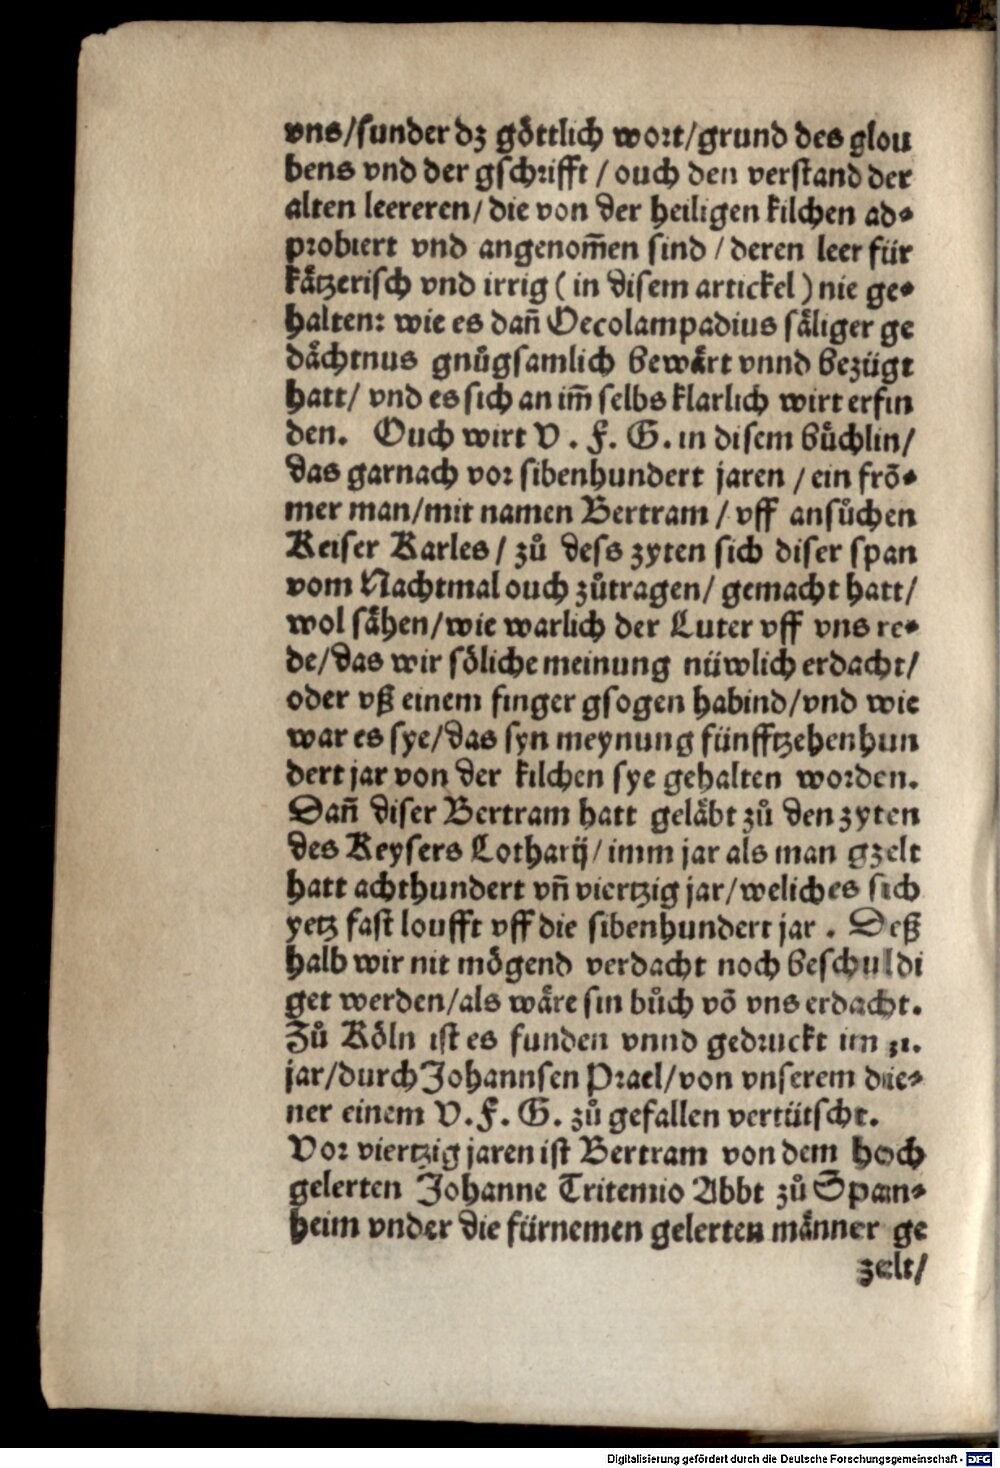 vns/sunder dz göttlich wort/grund des glou
bens vnd der gschrifft / ouch den verstand der
alten leereren/ die von der heiligen kilchen ad⸗
probiert vnd angenom̃en sind / deren leer für
kätzerisch vnd irrig ( in disem artickel ) nie ge⸗
halten: wie es dañ Oecolampadius säliger ge
dächtnus gnůgsamlich bewärt vnnd bezügt
hatt/ vnd es sich an im̃ selbs klarlich wirt erfin
den. Ouch wirt V. F. G. in disem bůchlin/
das garnach vor sibenhundert jaren / ein frõ⸗
mer man/mit namen Bertram / vff ansůchen
Keiser Karles / zů dess zyten sich diser span
vom Nachtmal ouch zůtragen/ gemacht hatt/
wol sähen/wie warlich der Luter vff vns re⸗
de/das wir söliche meinung nüwlich erdacht/
oder vß einem finger gsogen habind/vnd wie
war es sye/das syn meynung fünfftzehenhun
dert jar von der kilchen sye gehalten worden.
Dañ diser Bertram hatt geläbt zů den zyten
des Keysers Lotharij/ imm jar als man gzelt
hatt achthundert vñ viertzig jar/weliches sich
yetz fast loufft vff die sibenhundert jar . Deß
halb wir nit mögend verdacht noch beschuldi
get werden/als wäre sin bůch võ vns erdacht.
Zů Köln ist es funden vnnd gedruckt im 31.
jar/durch Johannsen Prael/von vnserem die⸗
ner einem V. F. G. zů gefallen vertütscht.
Vor viertzig jaren ist Bertram von dem hoch
gelerten Johanne Tritemio Abbt zů Span⸗
heim vnder die fürnemen gelerten männer ge
zelt/
Digitalisierung gefördert durch die Deutsche Forschungsgemeinschaft - DFG